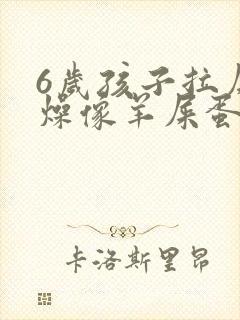 6岁孩子拉
燥像羊屎蛋
卡洛斯里昂